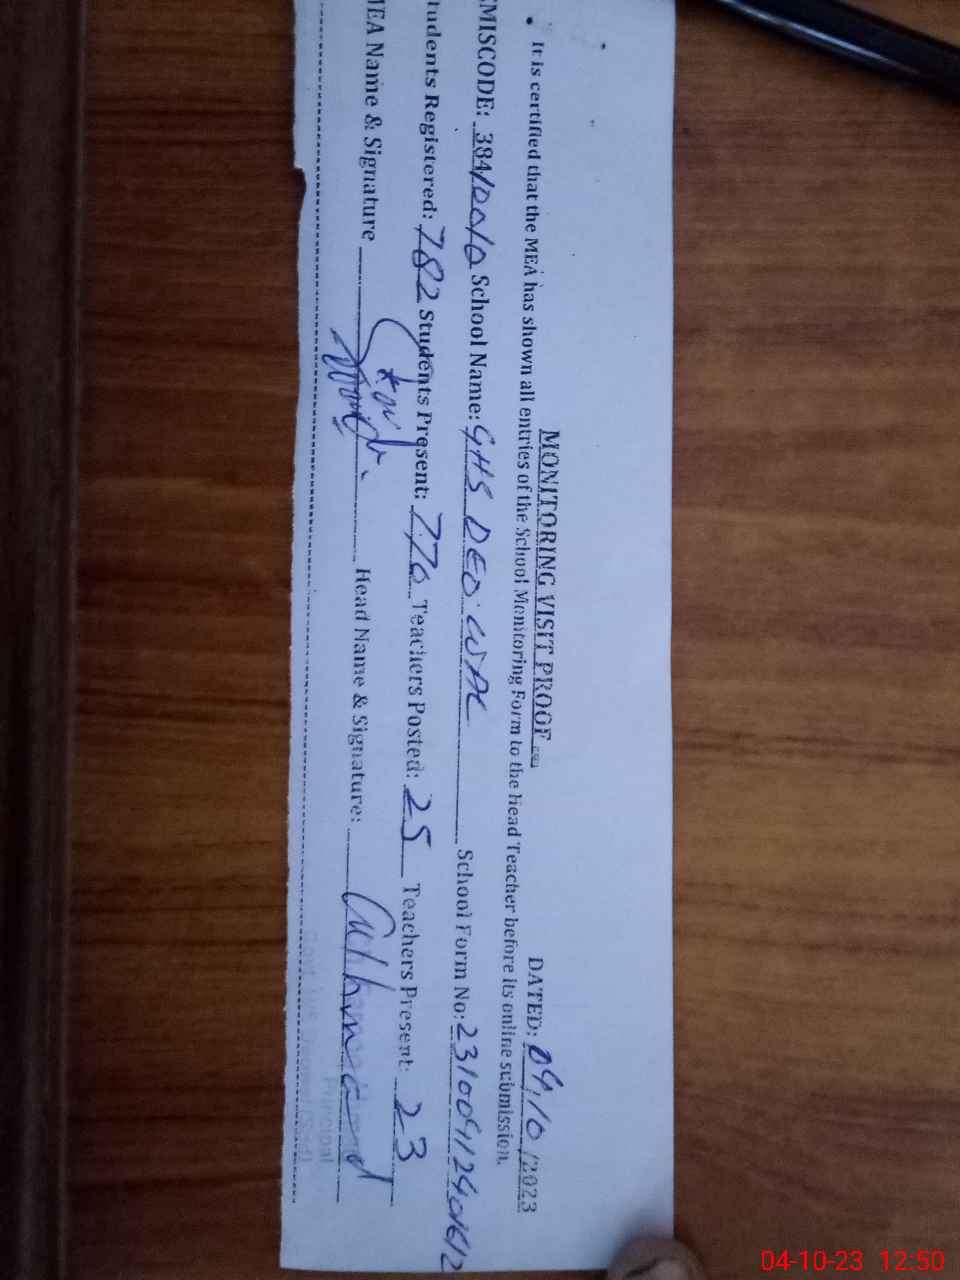 MONITORING VISIT PROOF
DATED: 04/10/2023
• It is certified that the MEA has shown all entries of the School Monitoring Form to the Head Teacher before its online submission.
EMISCODE: 38410010 School Name: GHS DEO. WAL School Form No: 
Students Registered: 782 Students Present: 770 Teachers Posted: 25 Teachers Present: 23
MEA Name & Signature Head Name & Signature:
Principal
04-10-23 12:50